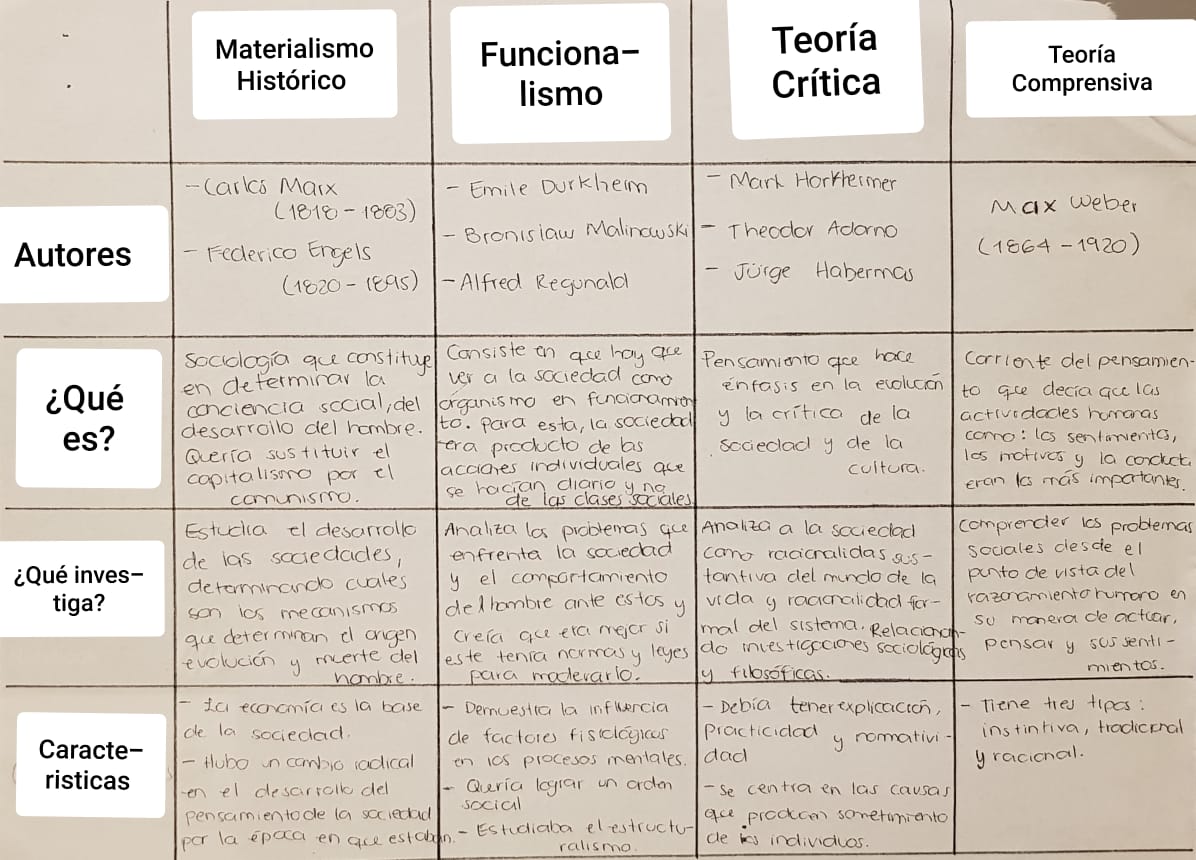 Materialismo
Histórico
Funciona-
lismo
Teoría
Crítica
Teoría
Comprensiva
Autores
- Carlos Marx
(1818 - 1883)
- Federico Engels
(1820 - 1895)
- Emile Durkheim
- Bronislaw Malinowski
- Alfred Regunald
- Mark Horkheimer
- Theodor Adorno
- Jürge Habermas
Max Weber
(1864 - 1920)
¿Qué
es?
Sociología que constituye
en determinar la
conciencia social, del
desarrollo del hombre.
Quería sustituir el
capitalismo por el
comunismo.
Consiste en que hay que
ver a la sociedad como
organismo en funcionamien
to. Para esta, la sociedad
era producto de las
acciones individuales que
se hacían diario y no
de las clases sociales
Pensamiento que hace
énfasis en la evolución
y la crítica de la
sociedad y de la
cultura.
Corriente del pensamien-
to que decía que las
actividades humanas
como: los sentimientos,
los motivos y la conducta
eran los más importantes.
¿Qué inves-
tiga?
Estudia el desarrollo
de las sociedades,
determinando cuales
son los mecanismos
que determinan el origen
evolución y muerte del
hombre.
Analiza los problemas que
enfrenta la sociedad
y el comportamiento
del hombre ante estos y
creía que era mejor si
este tenía normas y leyes
para moderarlo.
Analiza a la sociedad
como racionalidas sus-
tantiva del mundo de la
vida y racionalidad for-
mal del sistema. Relacionan-
do investigaciones sociológicas
y filosóficas.
Comprender los problemas
sociales desde el
punto de vista del
razonamiento humano en
su manera de actuar,
pensar y sus senti-
mientos.
Caracte-
risticas
- La economía es la base
de la sociedad.
- Hubo un cambio radical
en el desarrollo del
pensamiento de la sociedad
por la época en que estaban.
- Demuestra la influencia
de factores fisiológicos
en los procesos mentales.
- Quería lograr un orden
social
- Estudiaba el estructu-
ralismo.
- Debía tener explicación,
practicidad y normativi-
dad
- Se centra en las causas
que producen sometimiento
de los individuos.
- Tiene tres tipos:
instintiva, tradicional
y racional.